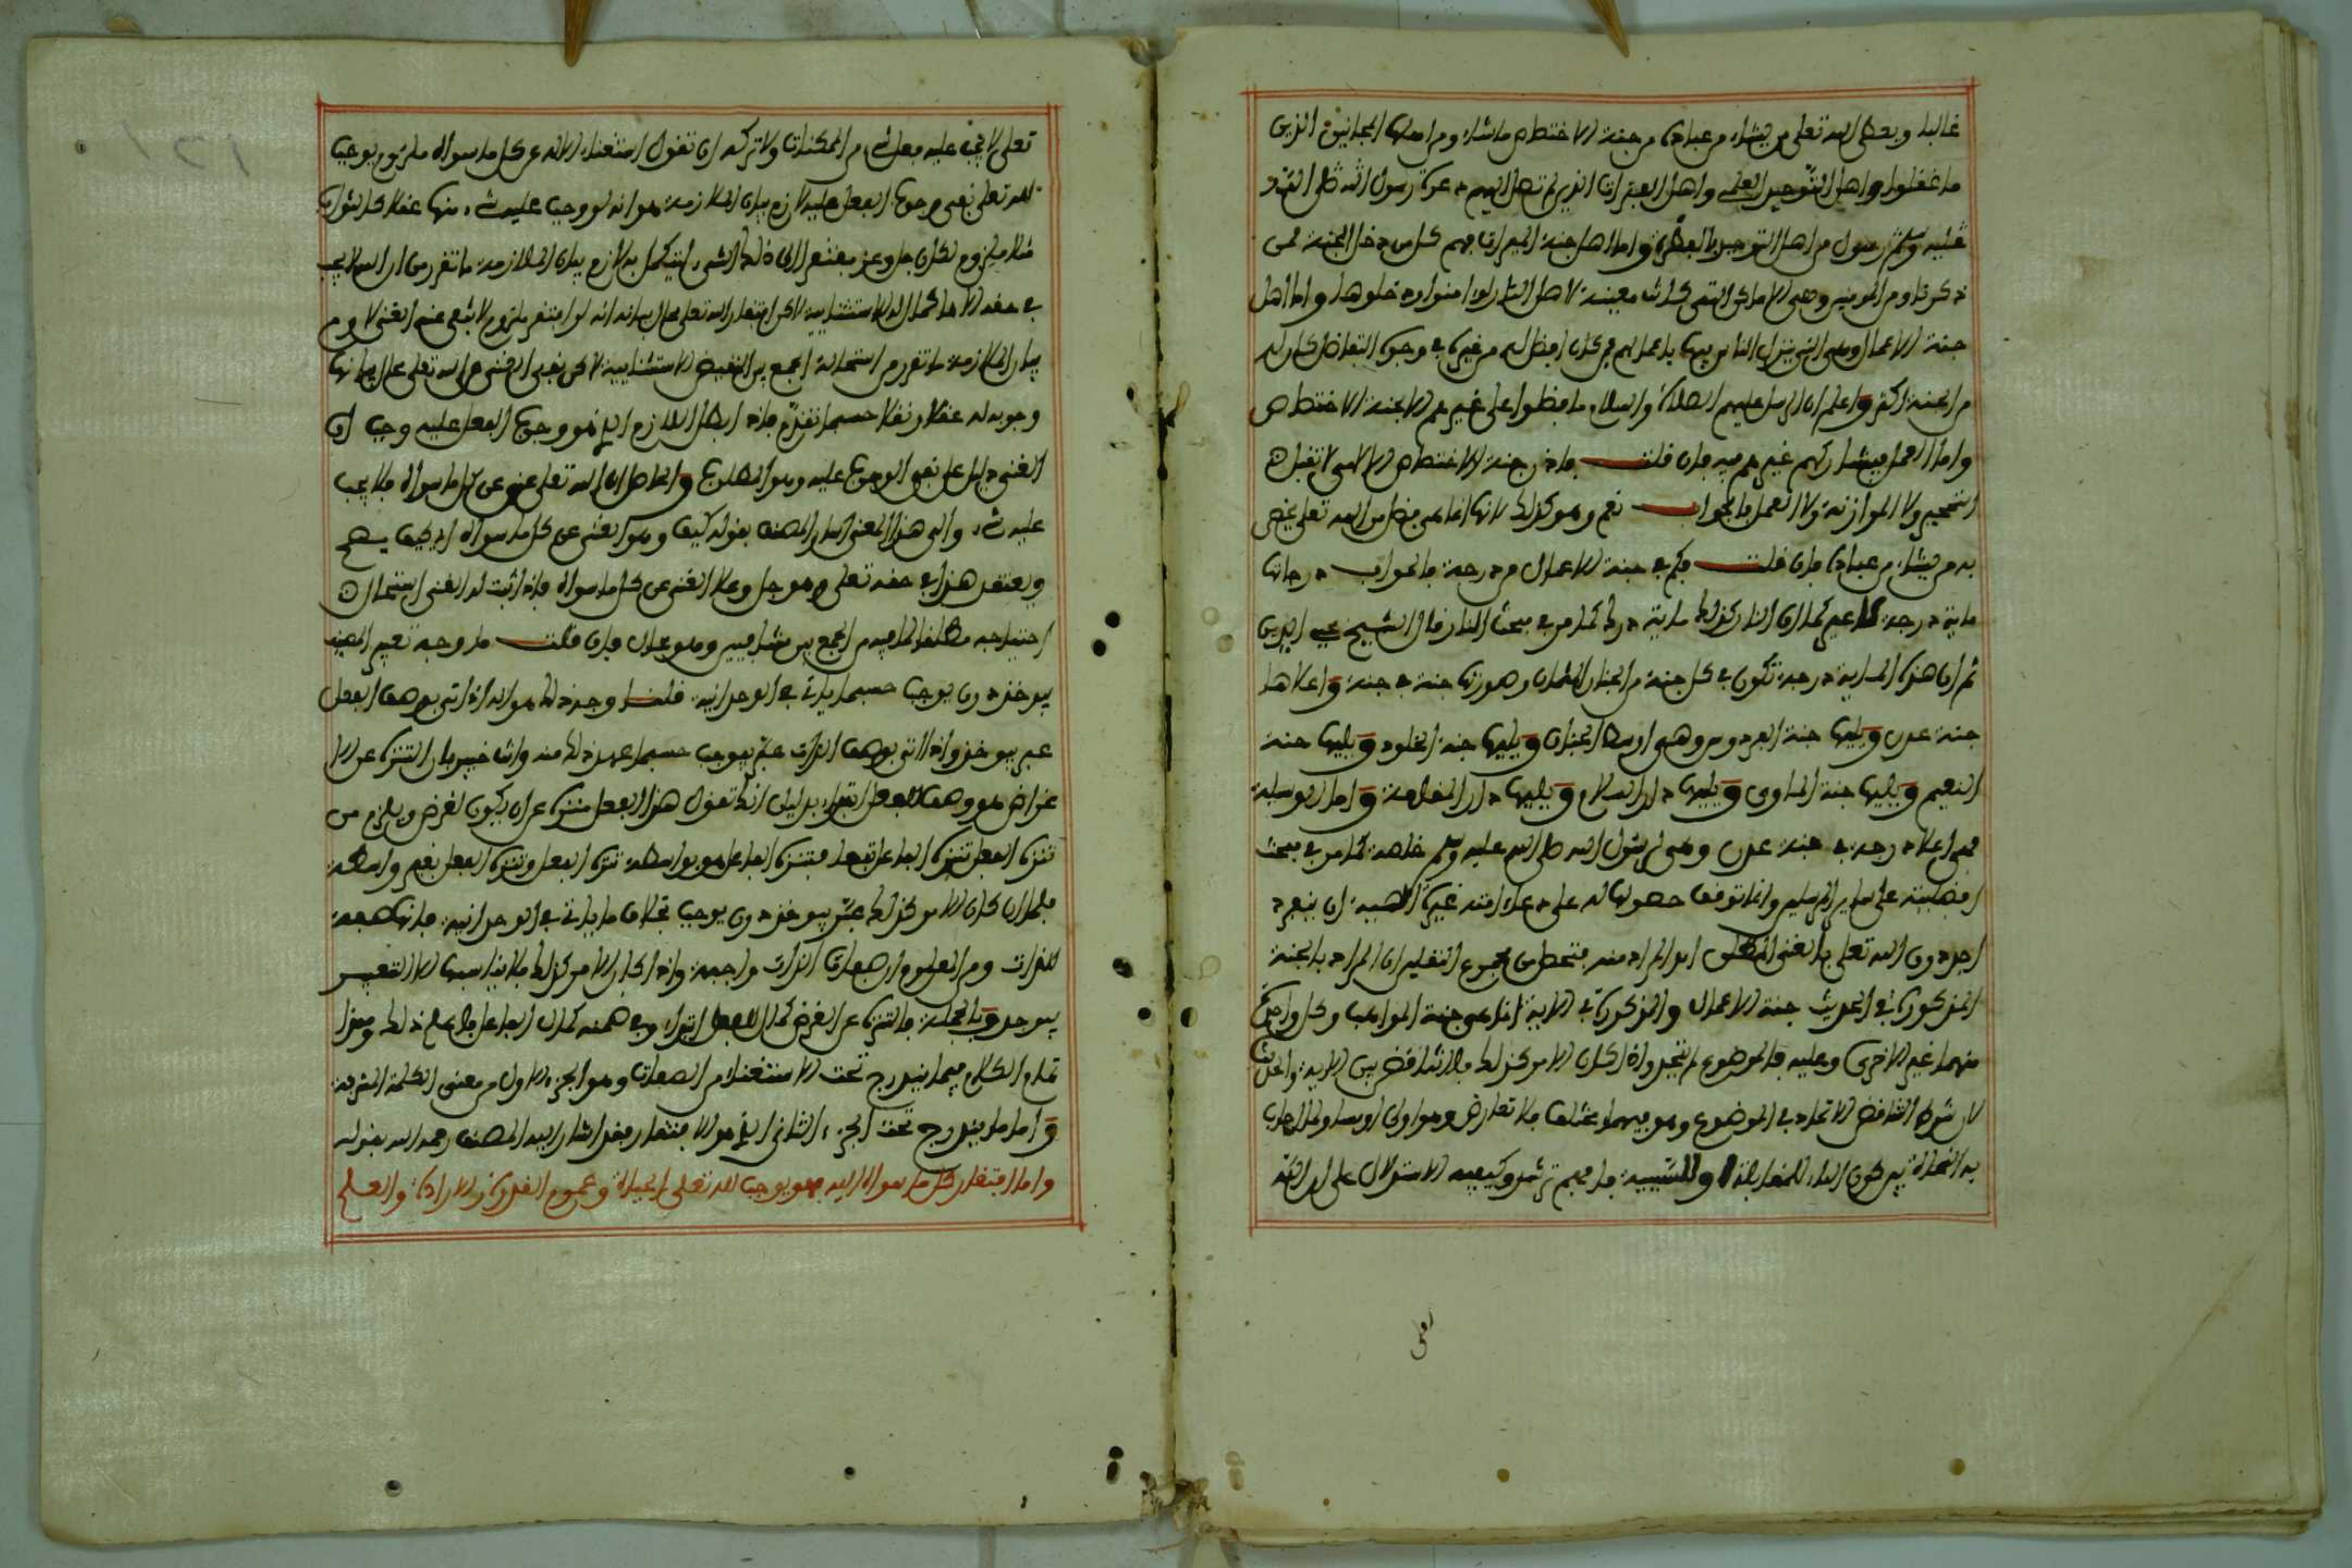 غالبا ويعطى الله تعلى من يشاء من عباده من جنة الاختصاص ما شاء ومن اهلها المجانين الذين
ما عقلوا واهل التوحيد العلمي واهل الفترات الذين لم تصل اليهم دعوة رسول الله صلى الله
عليه وسلم رسول من اهل التوحيد بالفطرة واما اهل جنة الميراث فهم كل من دخل الجنة ممن
ذكرنا ومن المومنين وهي الاماكن التي كانت معينة لاهل النار لو امنوا دخلوها واما اهل
جنة الاعمال وهي التي ينزل الناس فيها باعمالهم فمن كان افضل من غيره في وجوه التفاضل كان له
من الجنة اكثر واعلم ان الرسل عليهم الصلاة والسلام ما فضلوا على غيرهم الا بجنة الاختصاص
واما العمل فيشاركهم غيرهم فيه فان قلت فاذن جنة الاختصاص الالهي لا تقبل
التحجير ولا الموازنة ولا العمل فالجواب نعم وهو كذلك لانها انما هي فضل من الله تعلى يختص
به من يشاء من عباده فان قلت فكم في جنة الاعمال من درجة فالجواب درجاتها
ماية درجة لا غير كما ان النار كذلك ماية درك كما مر في مبحث النار قال الشيخ محيي الدين
ثم ان هذه الماية درجة تكون في كل جنة من الجنات الثمان وصورتها جنة في جنة واعلاها
جنة عدن ويليها جنة الفردوس وهي اوسط الجنات ويليها جنة الخلود ويليها جنة
النعيم ويليها جنة الماوى ويليها دار السلام ويليها دار المقامة واما الوسيلة
فهي اعلا درجة في جنة عدن وهي لرسول الله صلى الله عليه وسلم خاصة كما مر في مبحث
افضليته على ساير المرسلين وانما توقف حصولها له على دعاء امته غيرة الهية ان ينفرد
احد دون الله تعلى بالغنى المطلق المراد منه فتحصل من مجموع النقلين ان المراد بالجنة
المذكورة في الحديث جنة الاعمال والمذكورة في الاية انما هي جنة المواهب وكل واحدة
منهما غير الاخرى وعليه فالموضوع لم يتحد واذا كان الامر كذلك فلا تناقض بين الاية والحديث
لان شرط التناقض الاتحاد في الموضوع وهو فيهما مختلف فلا تعارض وهو اولى
به النحاة بين كون الباء للمقابلة وللسببية فافهم ترشد وكيفية الاستدلال على ان الله
تعلى لا يجب عليه فعل شيء من الممكنات ولا تركه ان تقول استغناء الاله عن كل ما سواه ملزوم يوجب
لله تعلى نفي وجوب الفعل عليه لازم بيان الملازمة هو انه لو وجب عليه شيء منها عقلا كالثواب
مثلا ملزوم لكان جل وعز مفتقرا الى ذلك الشيء ليتكمل به لازم بيان الملازمة ما تقرر من ان الله لا يجب
في حقه الا ما كمال له الاستثنايية لاكن افتقار الله تعلى محال بيانه انه لو افتقر ملزوم لانتفى عنه الغنى لازم
بيان الملازمة ما تقرر من استحالة الجمع بين النقيضين الاستثنايية لاكن نفي الغنى عن الله تعلى محال بيانها
وجوبه له عقلا ونقلا حسبما تقدم فاذا بطل اللازم الذي هو وجوب الفعل عليه وجب ان
الغنى دليل على نفي الوجوب عليه وهو المطلوب والحاصل ان الله تعلى غني عن كل ما سواه فلا يجب
عليه شيء والى هذا المعنى اشار المصنف بقوله كيف وهو الغني عن كل ما سواه اي كيف يصح
ويعتقد هذا في حقه تعلى وهو جل وعلا الغني عن كل ما سواه فاذا ثبت له الغنى استحال
احتياجه مطلقا لما فيه من الجمع بين متنافيين وهو محال فان قلت ما وجه تعبير المصنف
بيوخذ دون يوجب حسبما ياتي في الوحدانية قلت وجه ذلك هو انه اذا اتى بوصف الفعل
عبر بيوخذ واذا اتى بوصف الذات عبر بيوجب حسبما عهد ذلك منه وانت خبير بان التنزه عن الا
غراض هو وصف للفعل ابتداء بدليل انك تقول هذا الفعل منزه عن ان يكون لغرض ويلزم من
تنزه الفعل تنزه الفاعل تبعا فتنزه الفاعل هو بواسطة تنزه الفعل وتنزه الفعل بغير واسطة
فلما ان كان الامر كذلك عبر بيوخذ دون يوجب بخلاف ما ياتي في الوحدانية فانها صفة
للذات ومن المعلوم ان صفات الذات واجبة واذا كان الامر كذلك فلا يناسبها الا التعبير
بيوجب وبالجملة فالتنزه عن الغرض كمال للفعل ابتداء وفي ضمنه كمال الفاعل فاعلم ذلك وهنا
تمام الكلام فيما يندرج تحت الاستغناء من الصفات وهو الجزء الاول من معنى الكلمة المشرفة
واما ما يندرج تحت الجزء الثاني الذي هو الافتقار فقد اشار اليه المصنف رحمه الله بقوله
واما افتقار كل ما سواه اليه فهو يوجب لله تعلى الحياة وعموم القدرة والارادة والعلم